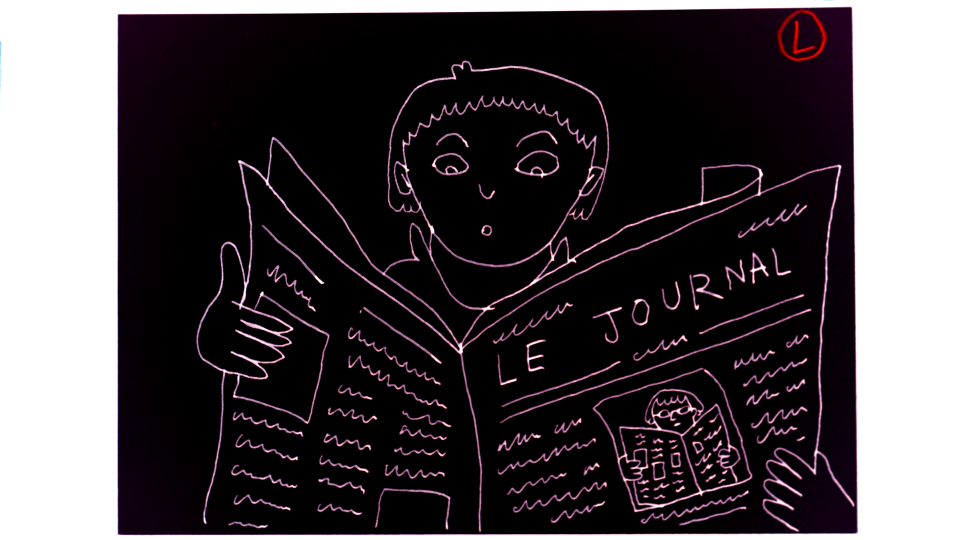 L
LE JOURNAL